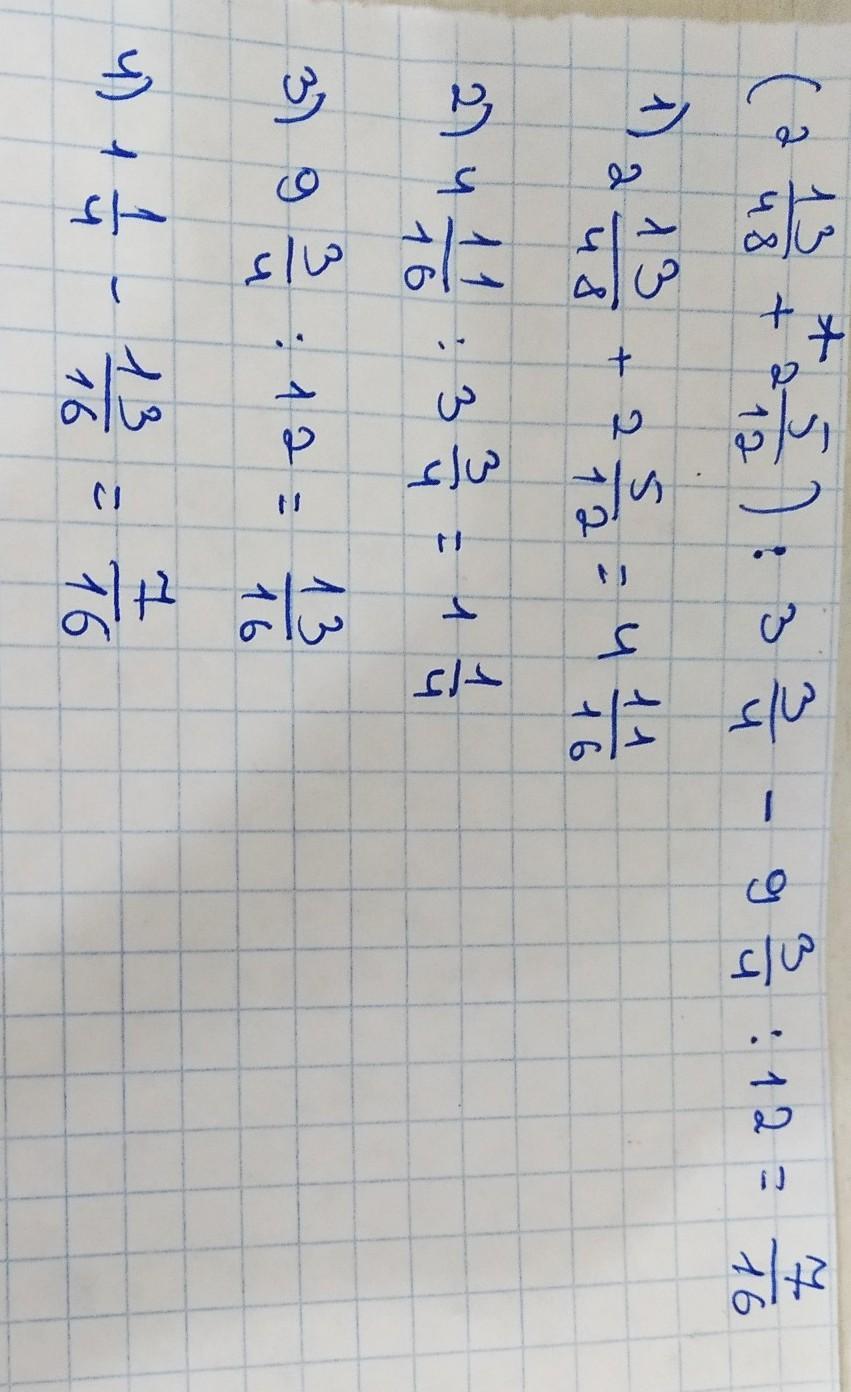 (2 13/48 + 2 5/12) : 3 3/4 - 9 3/4 : 12 = 7/16
1) 2 13/48 + 2 5/12 = 4 11/16
2) 4 11/16 : 3 3/4 = 1 1/4
3) 9 3/4 : 12 = 13/16
4) 1 1/4 - 13/16 = 7/16